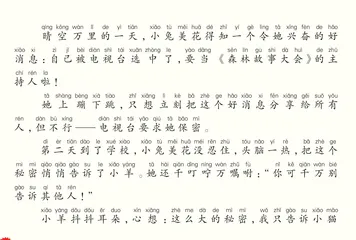 qíng kōng wàn lǐ de yì tiān xiǎo tù měi huā dé zhī yí gè lìng tā xīng fèn de hǎo
晴空万里的一天，小兔美花得知一个令她兴奋的好
xiāo xi zì jǐ bèi diàn shì tái xuǎn zhòng le yào dāng sēn lín gù shi dà huì de zhǔ
消息：自己被电视台选中了，要当《森林故事大会》的主
chí rén la
持人啦！
tā shàng bèng xià tiào zhǐ xiǎng lì kè bǎ zhè ge hǎo xiāo xi fēn xiǎng gěi suǒ yǒu
她上蹦下跳，只想立刻把这个好消息分享给所有
rén dàn bù xíng diàn shì tái yāo qiú tā bǎo mì
人，但不行——电视台要求她保密。
dì èr tiān dào le xué xiào xiǎo tù měi huā méi rěn zhù tóu nǎo yí rè bǎ zhè ge
第二天到了学校，小兔美花没忍住，头脑一热，把这个
mì mì qiāo qiāo gào su le xiǎo yáng tā hái qiān dīng níng wàn zhǔ fù nǐ kě qiān wàn bié
秘密悄悄告诉了小羊。她还千叮咛万嘱咐：“你可千万别
gào su qí tā rén
告诉其他人！”
xiǎo yáng dǒu dǒu ěr duo xīn xiǎng zhè me dà de mì mì wǒ zhǐ gào su xiǎo māo
小羊抖抖耳朵，心想：这么大的秘密，我只告诉小猫